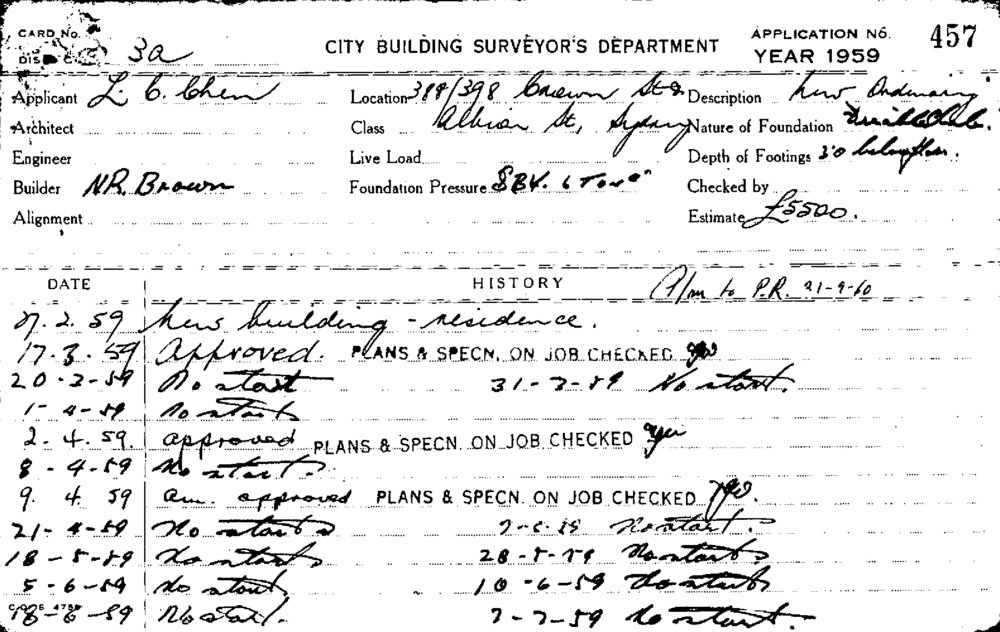 CARD No. 3a CITY BUILDING SURVEYOR'S DEPARTMENT APPLICATION No. 457
YEAR 1959
Applicant L. C. Chen Location 388/398 Crown St & Description New Ordinary
Architect Class Albion St, Sydney Nature of Foundation
Engineer Live Load Depth of Footings 3'0 below floor.
Builder N.R. Brown Foundation Pressure S.B.V. 6 Tons Checked by
Alignment Estimate £5500.
DATE HISTORY P/m to P.R. 21-9-60
27. 2. 59 New building - residence.
17. 3. 59 Approved. PLANS & SPECN. ON JOB CHECKED yes
20-3-59 No start 31-3-59 No start.
1-4-59 No start
2. 4. 59. approved PLANS & SPECN. ON JOB CHECKED yes
8-4-59 No start.
9. 4 59 am. approved PLANS & SPECN. ON JOB CHECKED yes.
21-4-59 No start No start.
18-5-59 No start 28-5-59 No start
5-6-59 No start 10-6-59 No start
18-6-59 No start. 2-7-59 No start.